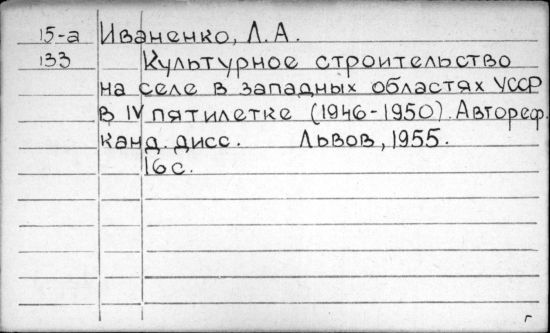 15-а Иваненко, Л.А.
133 Культурное строительство
на селе в западных областях УССР
в IV пятилетке (1946-1950). Автореф.
канд. дисс. Львов, 1955.
16 с.
г